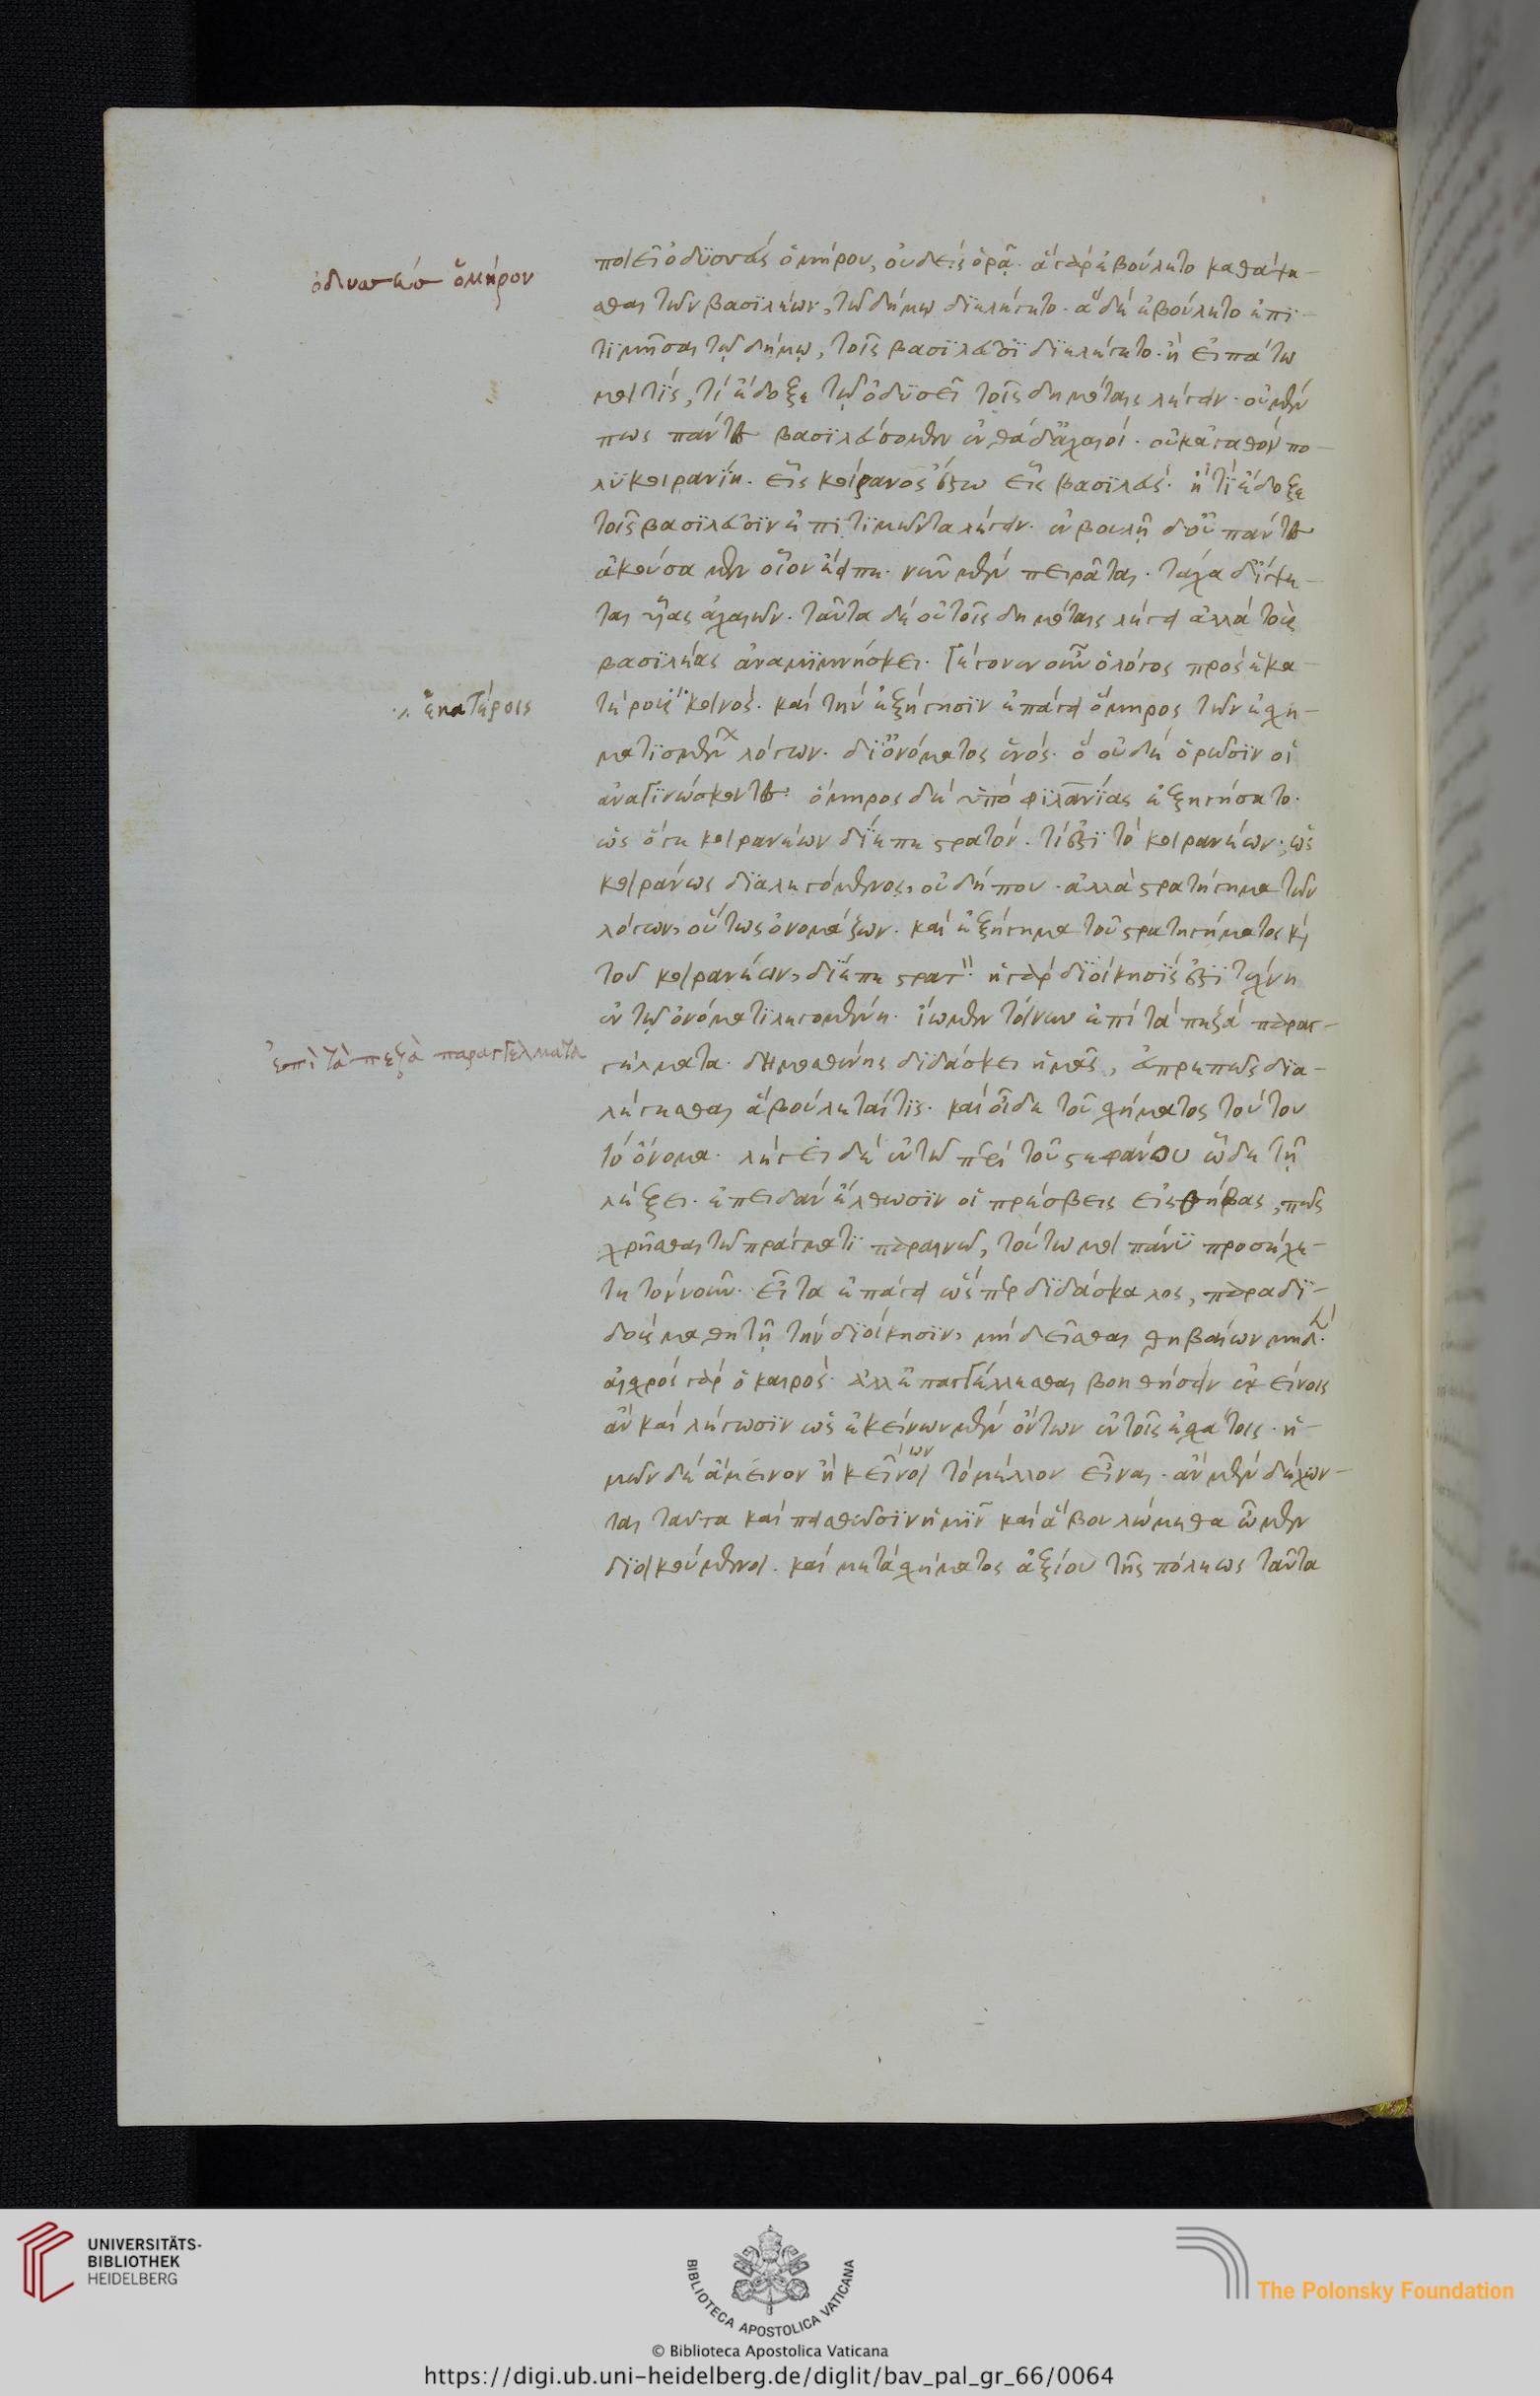 ὀδυσσεὺσ ὁμήρου
ποιεῖ ὀδϋσσεὺς ὁμήρου, οὐδεὶς ὁρᾷ. ἃ γὰρ ἐβούλετο καθάψε-
σθαι τῶν βασϊλέων, τῶ δήμω δϊελέγετο. ἃ δὲ ἐβούλετο ἐπϊ-
τϊμῆσαι τῷ δήμῳ, τοῖς βασϊλεῦσϊ δϊελέγετο. ἢ εἰπάτω
μοι τϊς, τί ἔδοξε τῷ ὀδϋσεῖ τοῖς δημόταις λέγειν. οὐ μέν
πως πάντες βασϊλεύσομεν ἐνθάδ' ἀχαιοί. οὐκ ἀγαθὸν πο-
λϋκοιρανΐη. εἷς κοίρανος ἔστω εἷς βασϊλεύς. ἢ τί ἔδοξε
τοῖς βασϊλεῦσϊν ἐπϊτϊμῶντα λέγειν. ἐν βουλῇ δ' οὐ πάντες
ἀκούσαμεν οἷον ἔειπε. νῦν μὲν πειρᾶται. τάχα δ' ἴψε-
ται υἷας ἀχαιῶν. ταῦτα δὲ οὐ τοῖς δημόταις λέγει ἀλλὰ τοὺς
βασϊλέας ἀναμϊμνήσκει. γέγονεν οὖν ὁ λόγος πρὸς ἑκα-
⸓ ἑκατέροις
τέρους κοινός. καὶ τὴν ἐξήγησϊν ἐπάγει ὅμηρος τῶν ἐσχη-
ματϊσμένων λόγων. δϊ' ὀνόματος ἑνός. ὃ οὐδὲ ὁρῶσϊν οἱ
ἀναγϊνώσκοντες. ὅμηρος δὲ ὑπὸ φϊλανΐας ἐξηγήσατο.
ὣς ὅγε κοιρανέων δΐεπε στρατόν. τί ἐστϊ τὸ κοιρανέων; ὡς
κοιράνοις δϊαλεγόμενος, οὐδήπου. ἀλλὰ στρατήγημα τῶν
λόγων, οὕτως ὀνομάζων. καὶ ἐξήγημα τοῦ στρατηγήματος καὶ
τοῦ κοιρανέων, δΐεπε στρατ. ἡ γὰρ δϊοίκησϊς ἐστϊ τέχνη
ἐν τῷ ὀνόματϊ λεγομένη. ἴωμεν τοίνυν ἐπὶ τὰ πεζὰ παραγ-
ἐπὶ τὰ πεζὰ παραγγέλματα
γέλματα. δημοσθένης δϊδάσκει ἡμᾶς, εὐπρεπῶς δϊα-
λέγεσθαι ἃ βούλεταί τϊς. καὶ οἶδε τοῦ σχήματος τούτου
τὸ ὄνομα. λέγει δὲ ἐν τῶ περὶ τοῦ στεφάνου ὧδε τῇ
λέξει. ἐπειδὰν ἔλθωσϊν οἱ πρέσβεις εἰς θήβας, πῶς
χρῆσθαι τῶ πράγματϊ παραινῶ, τούτω μοι πάνϋ προσέχε-
τε τὸν νοῦν. εἶτα ἐπάγει ὥσπερ δϊδάσκαλος, παραδϊ-
δοὺς μαθητῇ τὴν δϊοίκησϊν, μὴ δεῖσθαι θηβαίων μηδ.
αἰσχρὸς γὰρ ὁ καιρός. ἀλλ' ἐπαγγέλλεσθαι βοηθήσειν ἐκείνοις
ἂν καὶ λέγωσϊν ὡς ἐκείνων μὲν ὄντων ἐν τοῖς ἐσχάτοις. ἡ-
μῶν δὲ ἄμεινον ἢ κεῖνοι ων τὸ μέλλον εἶναι. ἂν μὲν δέχων-
ται ταῦτα καὶ πεισθῶσϊν ἡμῖν καὶ ἃ βουλώμεθα ὦμεν
δϊῳκούμενοι. καὶ μετὰ σχήματος ἀξίου τῆς πόλεως ταῦτα
UNIVERSITÄTS-
BIBLIOTHEK
HEIDELBERG
BIBLIOTECA APOSTOLICA VATICANA
The Polonsky Foundation
© Biblioteca Apostolica Vaticana
https://digi.ub.uni-heidelberg.de/diglit/bav_pal_gr_66/0064